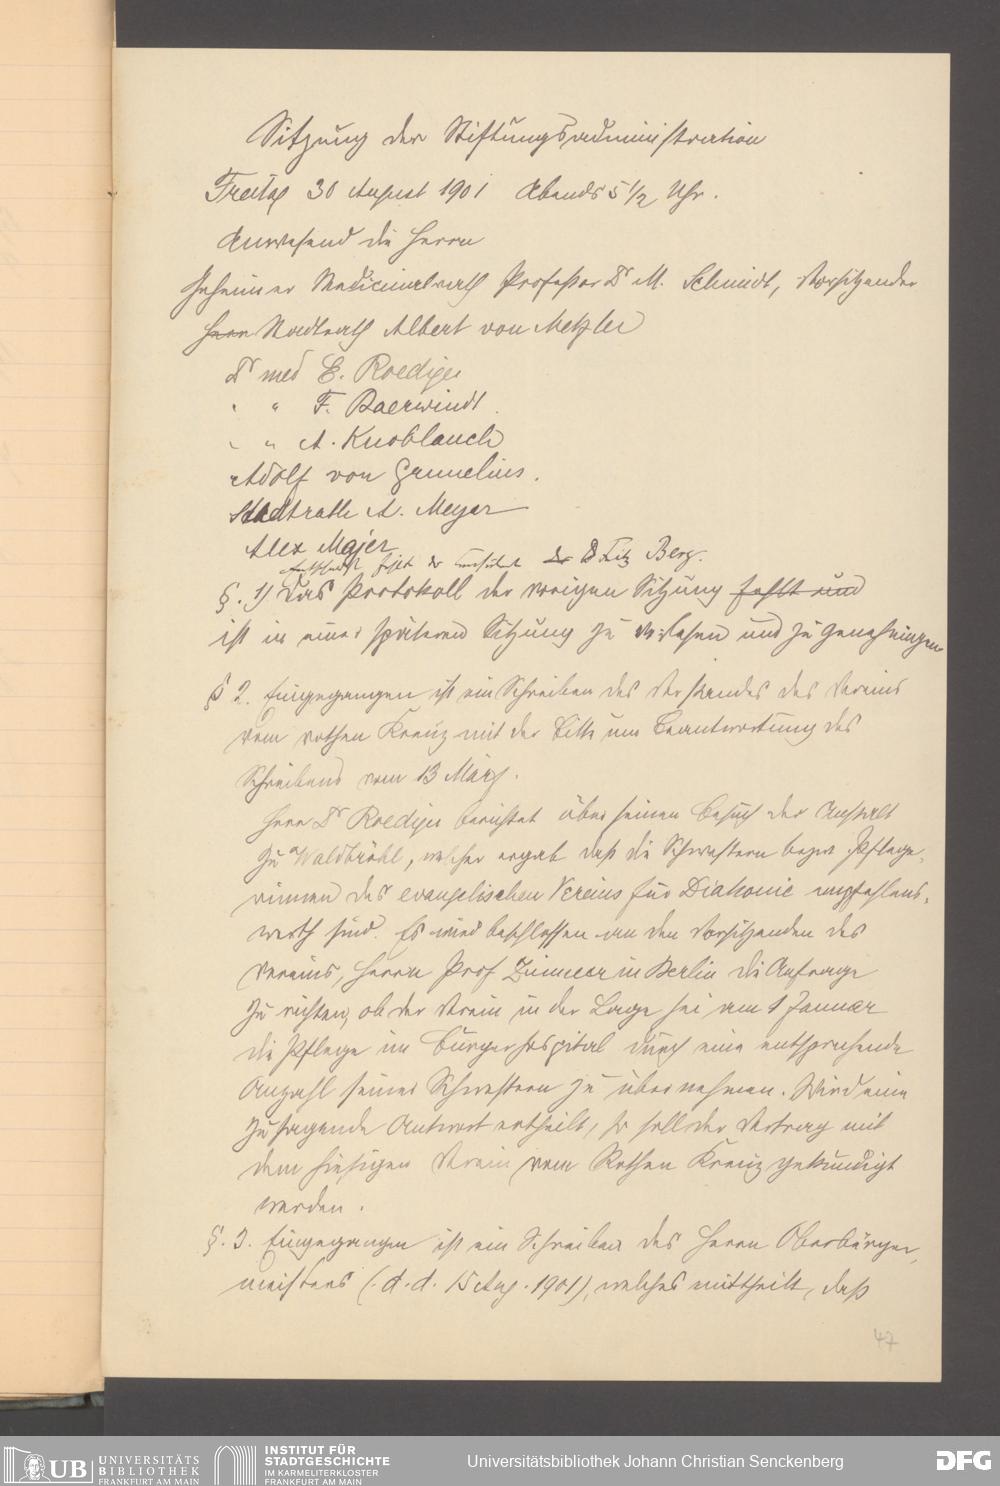 Sitzung der Stiftungsadministration
Freitag 30 August 1901 Abends 5 1/2 Uhr.
Anwesend die Herrn
Geheimer Medicinalrath Professor Dr M. Schmidt, Vorsitzender
Herr Stadtrath Albert von Metzler
Dr med E. Roediger
" " F. Baerwindt.
" " A. Knoblauch
Adolf von Grunelius.
Stadtrath A. Meyer
Alex Majer
fehlt der Dr Fritz Berg.
§. 1) Das Protokoll der vorigen Sitzung fehlt und
ist in einer späteren Sitzung zu verlesen und zu genehmigen
§ 2. Eingegangen ist ein Schreiben des Vorstandes des Vereins
vom rothen Kreuz mit der Bitte um Beantwortung des
Schreibens vom 13 März.
Herr Dr Roediger berichtet über seinen Besuch der Anstalt
zu Waldbröhl, welcher ergab daß die Schwestern bezw. Pflege-
rinnen des evangelischen Vereins für Diakonie empfehlens-
werth sind. Es wird beschlossen an den Vorsitzenden des
Vereins, Herrn Prof Zimmer in Berlin die Anfrage
zu richten, ob der Verein in der Lage sei am 1 Januar
die Pflege im Bürgerhospital durch eine entsprechende
Anzahl seiner Schwestern zu übernehmen. Wird eine
zusagende Antwort ertheilt, so soll der Vertrag mit
dem hiesigen Verein vom Rothen Kreuz gekündigt
werden.
§. 3. Eingegangen ist ein Schreiben des Herrn Oberbürger-
meisters (. d. d. 15 Aug. 1901), welches mittheilt, daß
47
UB UNIVERSITÄTS
BIBLIOTHEK
FRANKFURT AM MAIN
INSTITUT FÜR
STADTGESCHICHTE
IM KARMELITERKLOSTER
FRANKFURT AM MAIN
Universitätsbibliothek Johann Christian Senckenberg
DFG